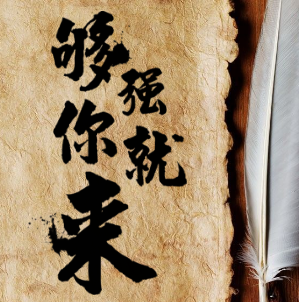 够强
就
你来